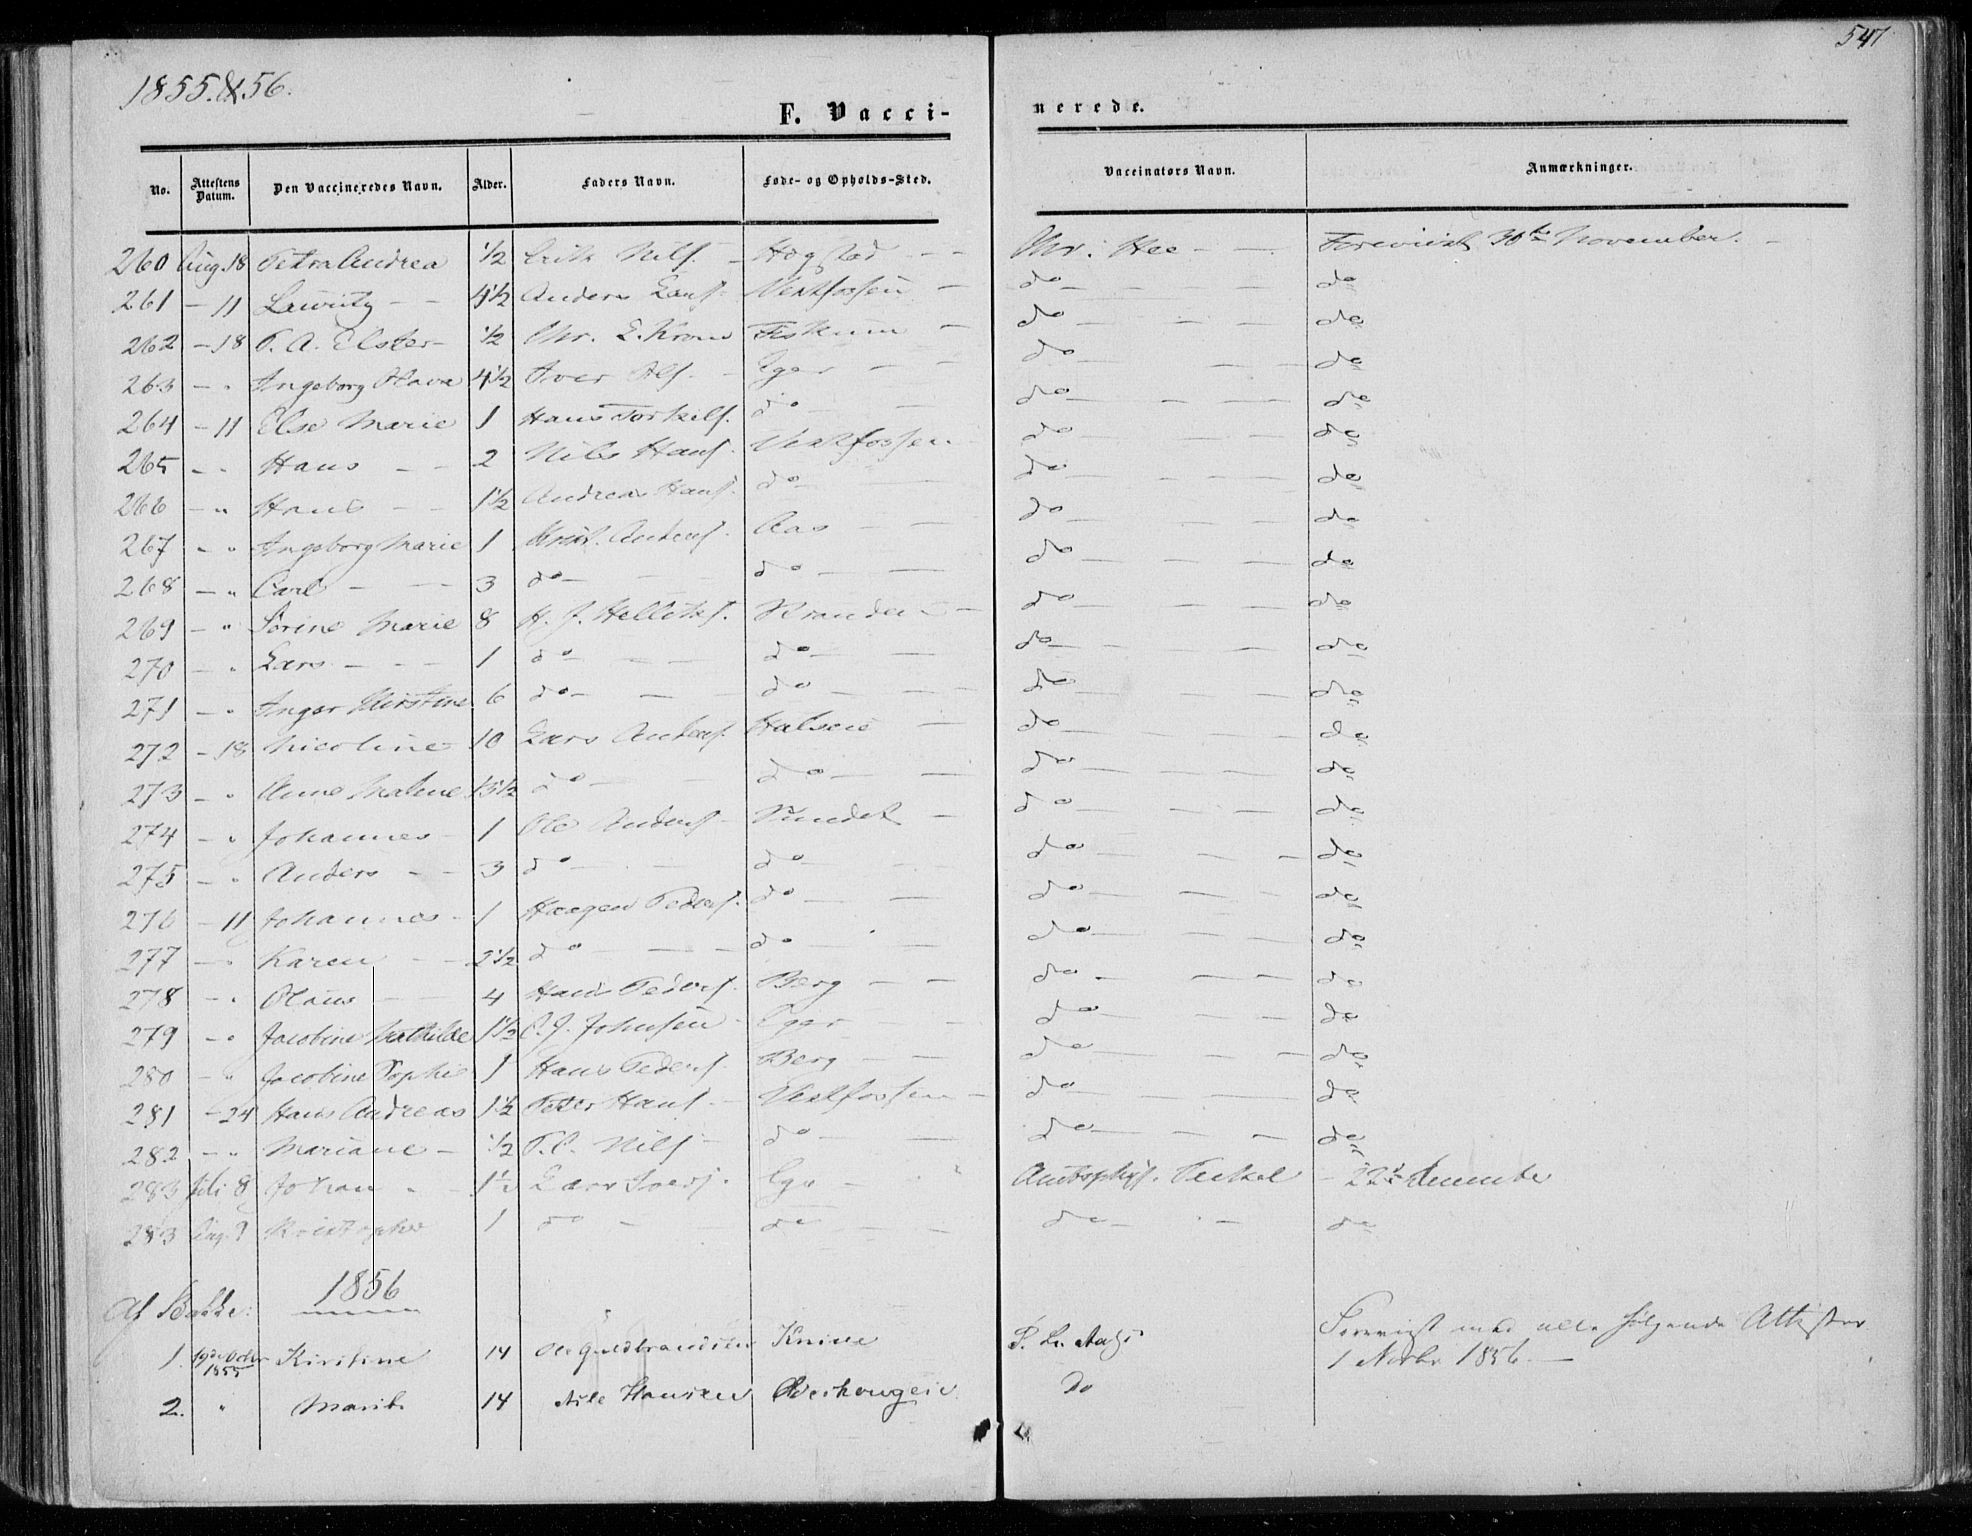 547
1855. & 56.
F. Vaccinerede.
No. Attestens Datum. Den Vaccineredes Navn. Alder. Faders Navn. Føde- og Opholds-Sted. Vaccinators Navn. Anmærkninger.
260 Aug. 18 Petra Andrea 1/2 Erik Nilss. Hogstad Chr. Hee Foreviist 30te November.
261 - 11 Lauritz 4 1/2 Anders Lauss. Vestfossen do do
262 - 18 P. A. Elster 1/2 Chr. E. Krom Fiskum do do
263 - " Ingeborg Olava 4 1/2 Iver Ols. Eger do do
264 - 11 Else Marie 1 Hans Torkils. do do do
265 - " Hans 2 Nils Hans. Vestfossen do do
266 - " Hans 1 1/2 Andreas Hans. do do do
267 - " Ingeborg Marie 1 Krist. Anders. Aas do do
268 - " Carl 3 do do do do
269 - " Sorine Marie 8 H. J. Helliks. Kranden do do
270 - " Lars 1 do do do do
271 - " Inger Kirstine 6 do do do do
272 - 18 Nicoline 10 Lars Anders. Halsen do do
273 - " Anne Malene 13 1/2 do do do do
274 - " Johannes 1 Ole Anders. Sundet do do
275 - " Anders 3 do do do do
276 - 11 Johannes 1 Haagen Peders. do do do
277 - " Karen 2 1/2 do do do do
278 - " Olaus 4 Hans Peders. Berg do do
279 - " Jacobine Mathilde 1 1/2 C. J. Johnsen Eger do do
280 - " Jacobine Sophie 1 Hans Peders. Berg do do
281 - 24 Hans Andreas 1 1/2 Peter Hans. Vestfossen do do
282 - " Mariane 1/2 P. C. Nils. do do do
283 Juli 8 Johan 1 1/2 Lars Eger - 22de
283 Aug. 9 Kristopher 1 do do do do
1856
Af Bakke:
1. 19de Octbr 1855 Kirstine 14 Ole Guldbrandsen Knive Foreviist med alle følgende Attester
1 Novbr 1856.
2. " Marit 14 Nils Hansen do